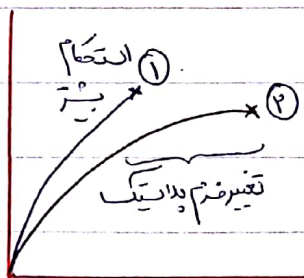 استحکام ①
بیشتر
②
تغییر فرم پلاستیک